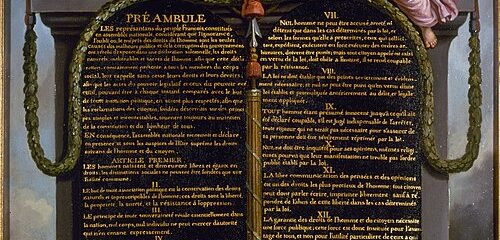 PRÉAMBULE
LES représentans du peuple François, constitués
en assemblée nationale, considérant que l'ignorance,
l'oubli ou le mépris des droits de l'homme sont les seules
causes des malheurs publics et de la corruption des gouvernemens
ont résolu d'exposer dans une déclaration solemnelle, les droits
naturels, inaliénables et sacrés de l'homme; afin que cette décla-
ration, constamment présente à tous les membres du corps
social, leur rappelle sans cesse leurs droits et leurs devoirs;
afin que les actes du pouvoir législatif et ceux du pouvoir exé-
cutif, pouvant être à chaque instant comparés avec le but
de toute institution politique, en soient plus respectés; afin que
les réclamations des citoyens, fondées désormais sur des princi-
pes simples et incontestables, tournent toujours au maintien
de la constitution et du bonheur de tous.
EN conséquence, l'assemblée nationale reconnoit et déclare
en présence et sous les auspices de l'Etre suprême les droits
suivans de l'homme et du citoyen.
ARTICLE PREMIER
LES hommes naissent et demeurent libres et égaux en
droits; les distinctions sociales ne peuvent être fondées que sur
l'utilité commune.
II.
LE but de toute association politique est la conservation des droits
naturels et imprescriptibles de l'homme; ces droits sont la liberté,
la propriété, la sureté, et la résistance à l'oppression.
III.
LE principe de toute souveraineté réside essentiellement dans
la nation, nul corps, nul individu ne peut exercer d'autorité
qui n'en émane expressément.
IV
VII.
NUL homme ne peut être accusé, arreté ni
détenu que dans les cas déterminés par la loi, et
selon les formes qu'elle a prescrites, ceux qui sollici-
tent, expédient, exécutent ou font exécuter des ordres ar-
bitraires, doivent être punis; mais tout citoyen appelé ou saisi
en vertu de la loi, doit obéir à l'instant, il se rend coupable
par la résistance.
VIII.
LA loi ne doit établir que des peines strictement et évidem-
ment nécessaires, et nul ne peut être puni qu'en vertu d'une
loi établie et promulguée antérieurement au délit, et légale-
ment appliquée.
IX.
TOUT homme étant présumé innocent jusqu'à ce qu'il ait
été déclaré coupable, s'il est jugé indispensable de l'arrêter,
toute rigueur qui ne serait pas nécessaire pour s'assurer de
sa personne doit être sévèrement réprimée par la loi.
X.
NUL ne doit être inquiété pour ses opinions, mêmes reli-
gieuses pourvu que leur manifestation ne trouble pas l'ordre
public établi par la loi.
XI.
LA libre communication des pensées et des opinions
est un des droits les plus precieux de l'homme; tout citoyen
peut donc parler, écrire, imprimer librement; sauf à ré-
pondre de l'abus de cette liberté dans les cas déterminés
par la loi.
XII.
LA garantie des droits de l'homme et du citoyen nécessite
une force publique; cette force est donc instituée pour l'avan-
tage de tous, et non pour l'utilité particulière de ceux a